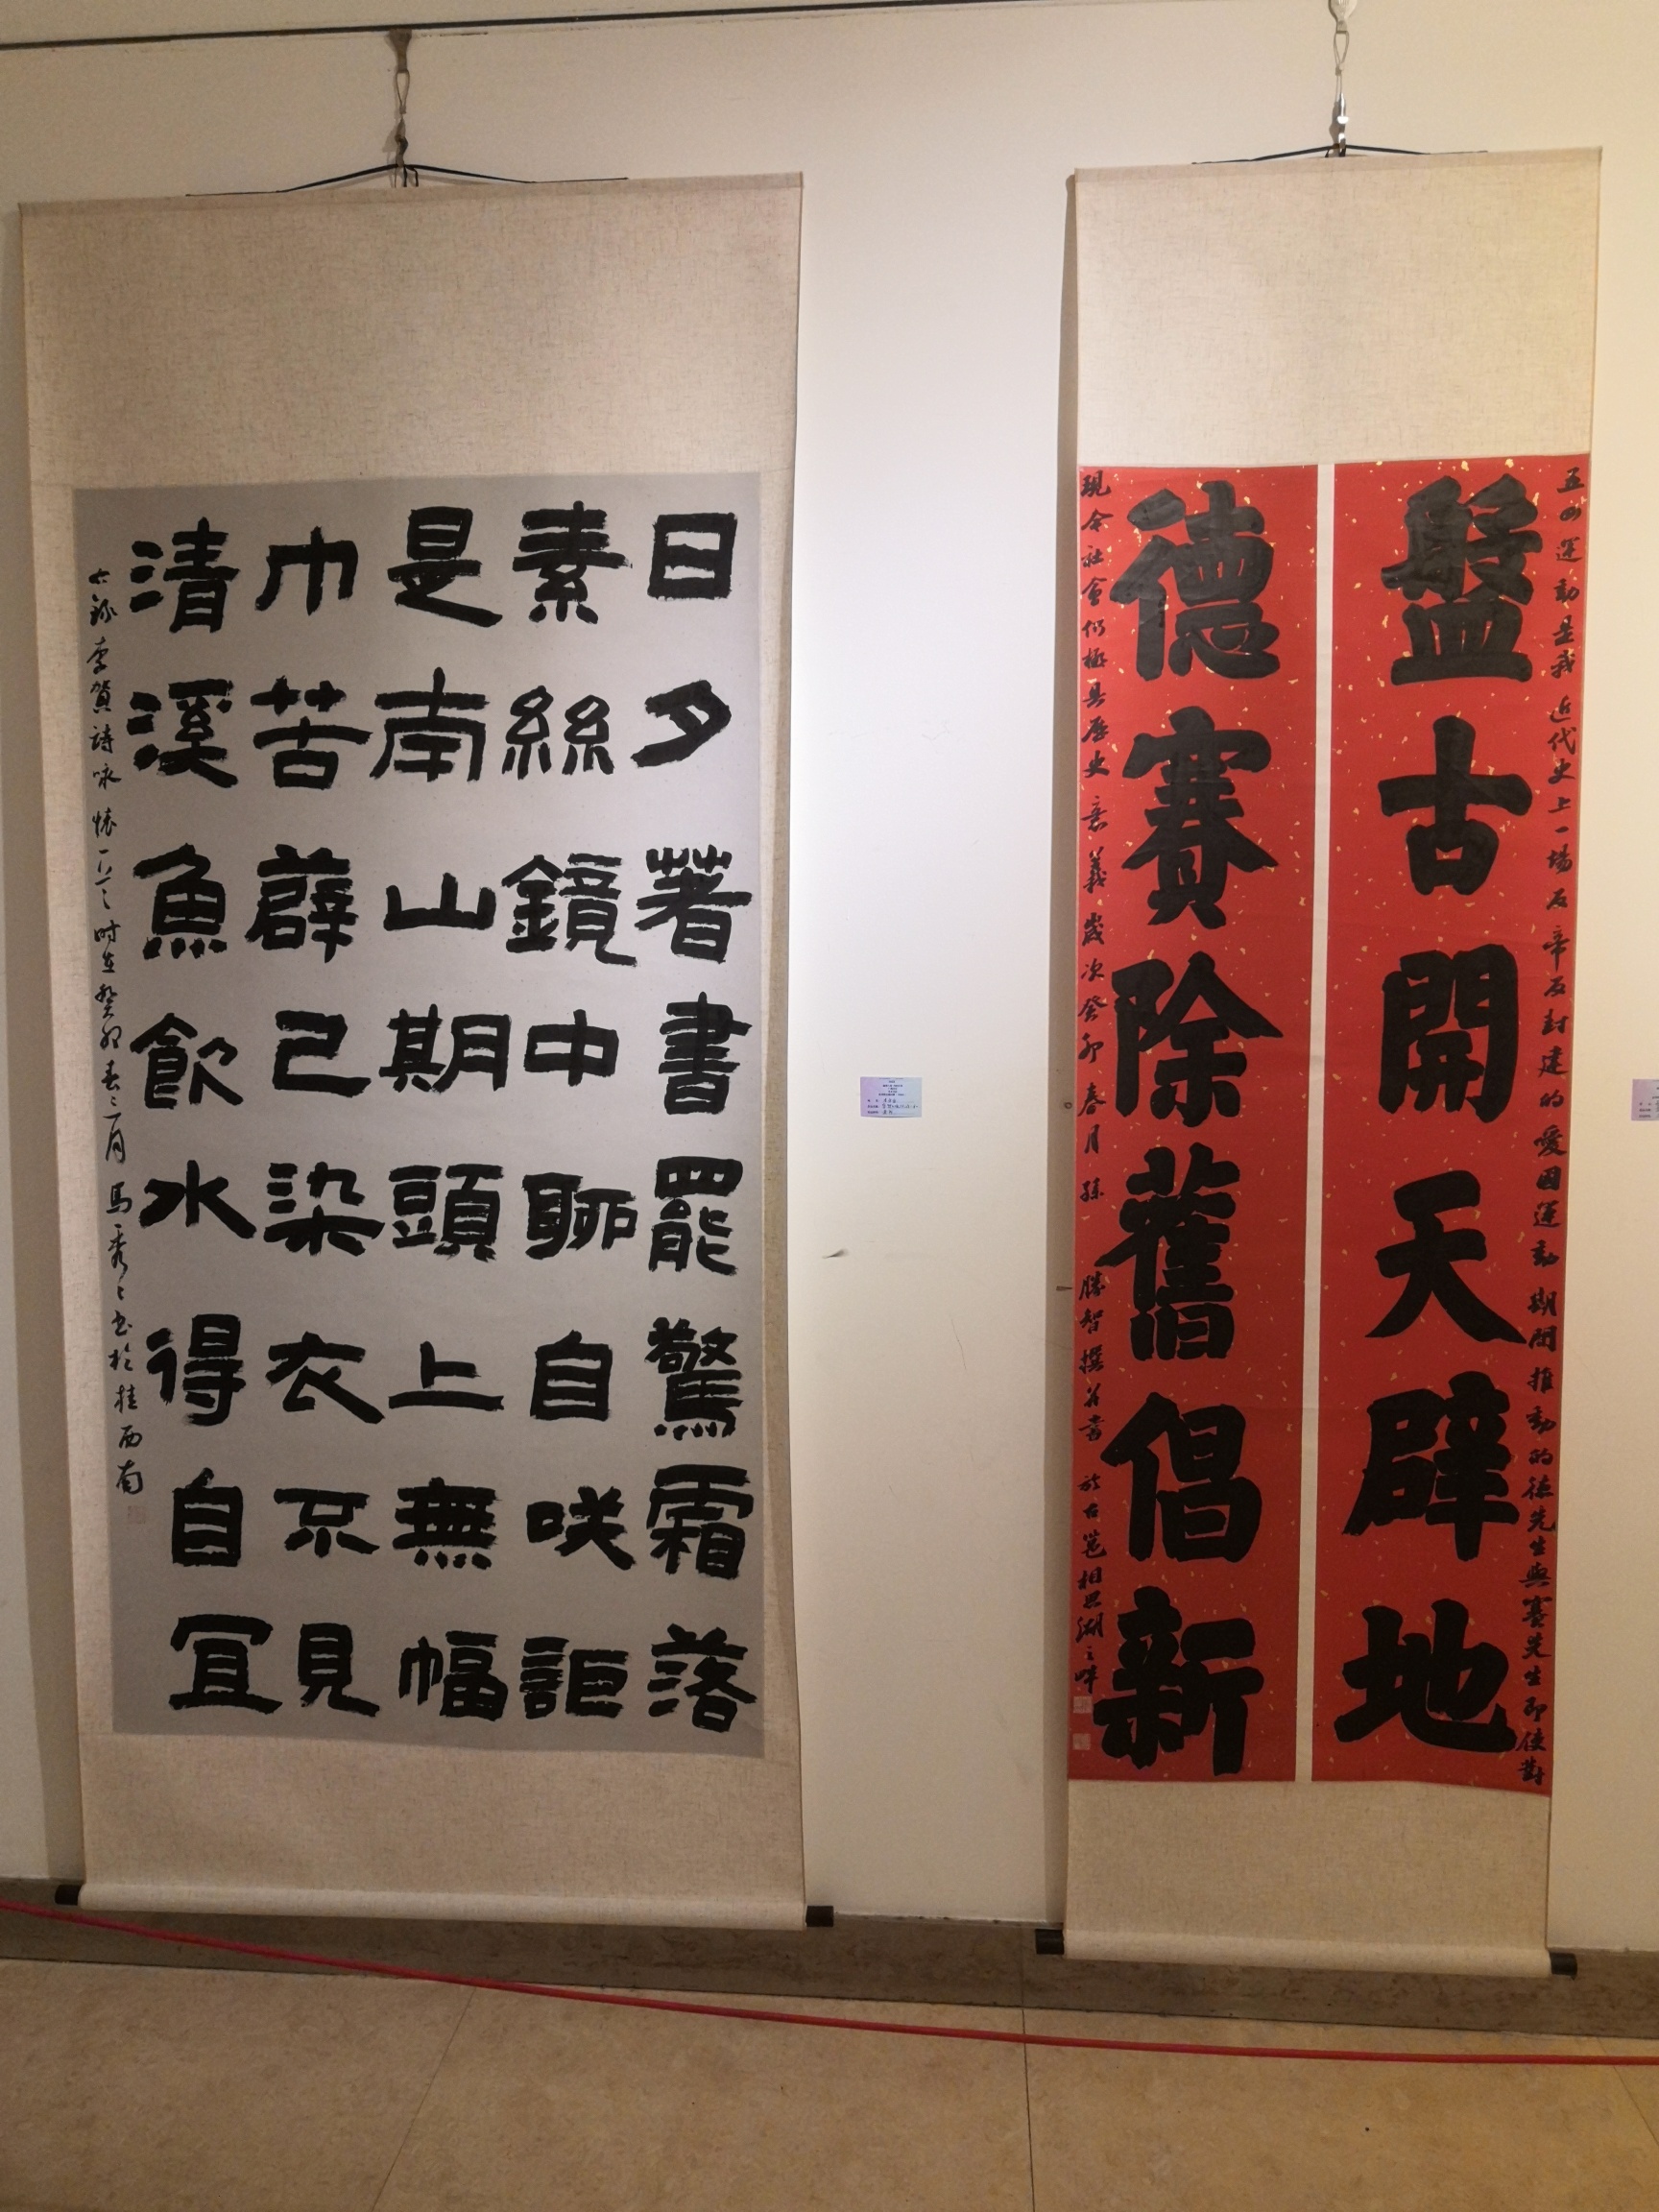 五四運動是我近代史上一場反帝反封建的愛国運動期間推動的德先生與賽先生即使對
盤古開天辟地
德賽除舊倡新
現今社會仍極具歷史意義歲次癸卯春月孫勝智撰并書於古邕相思湖之畔
日夕著書罷驚霜落
素絲鏡中聊自咲詎
是南山期頭上無幅
巾苦薜已染衣不見
清溪魚飲水得自宜
錄李賀詩咏懷 时在癸卯春二月馬秀 书於桂西南